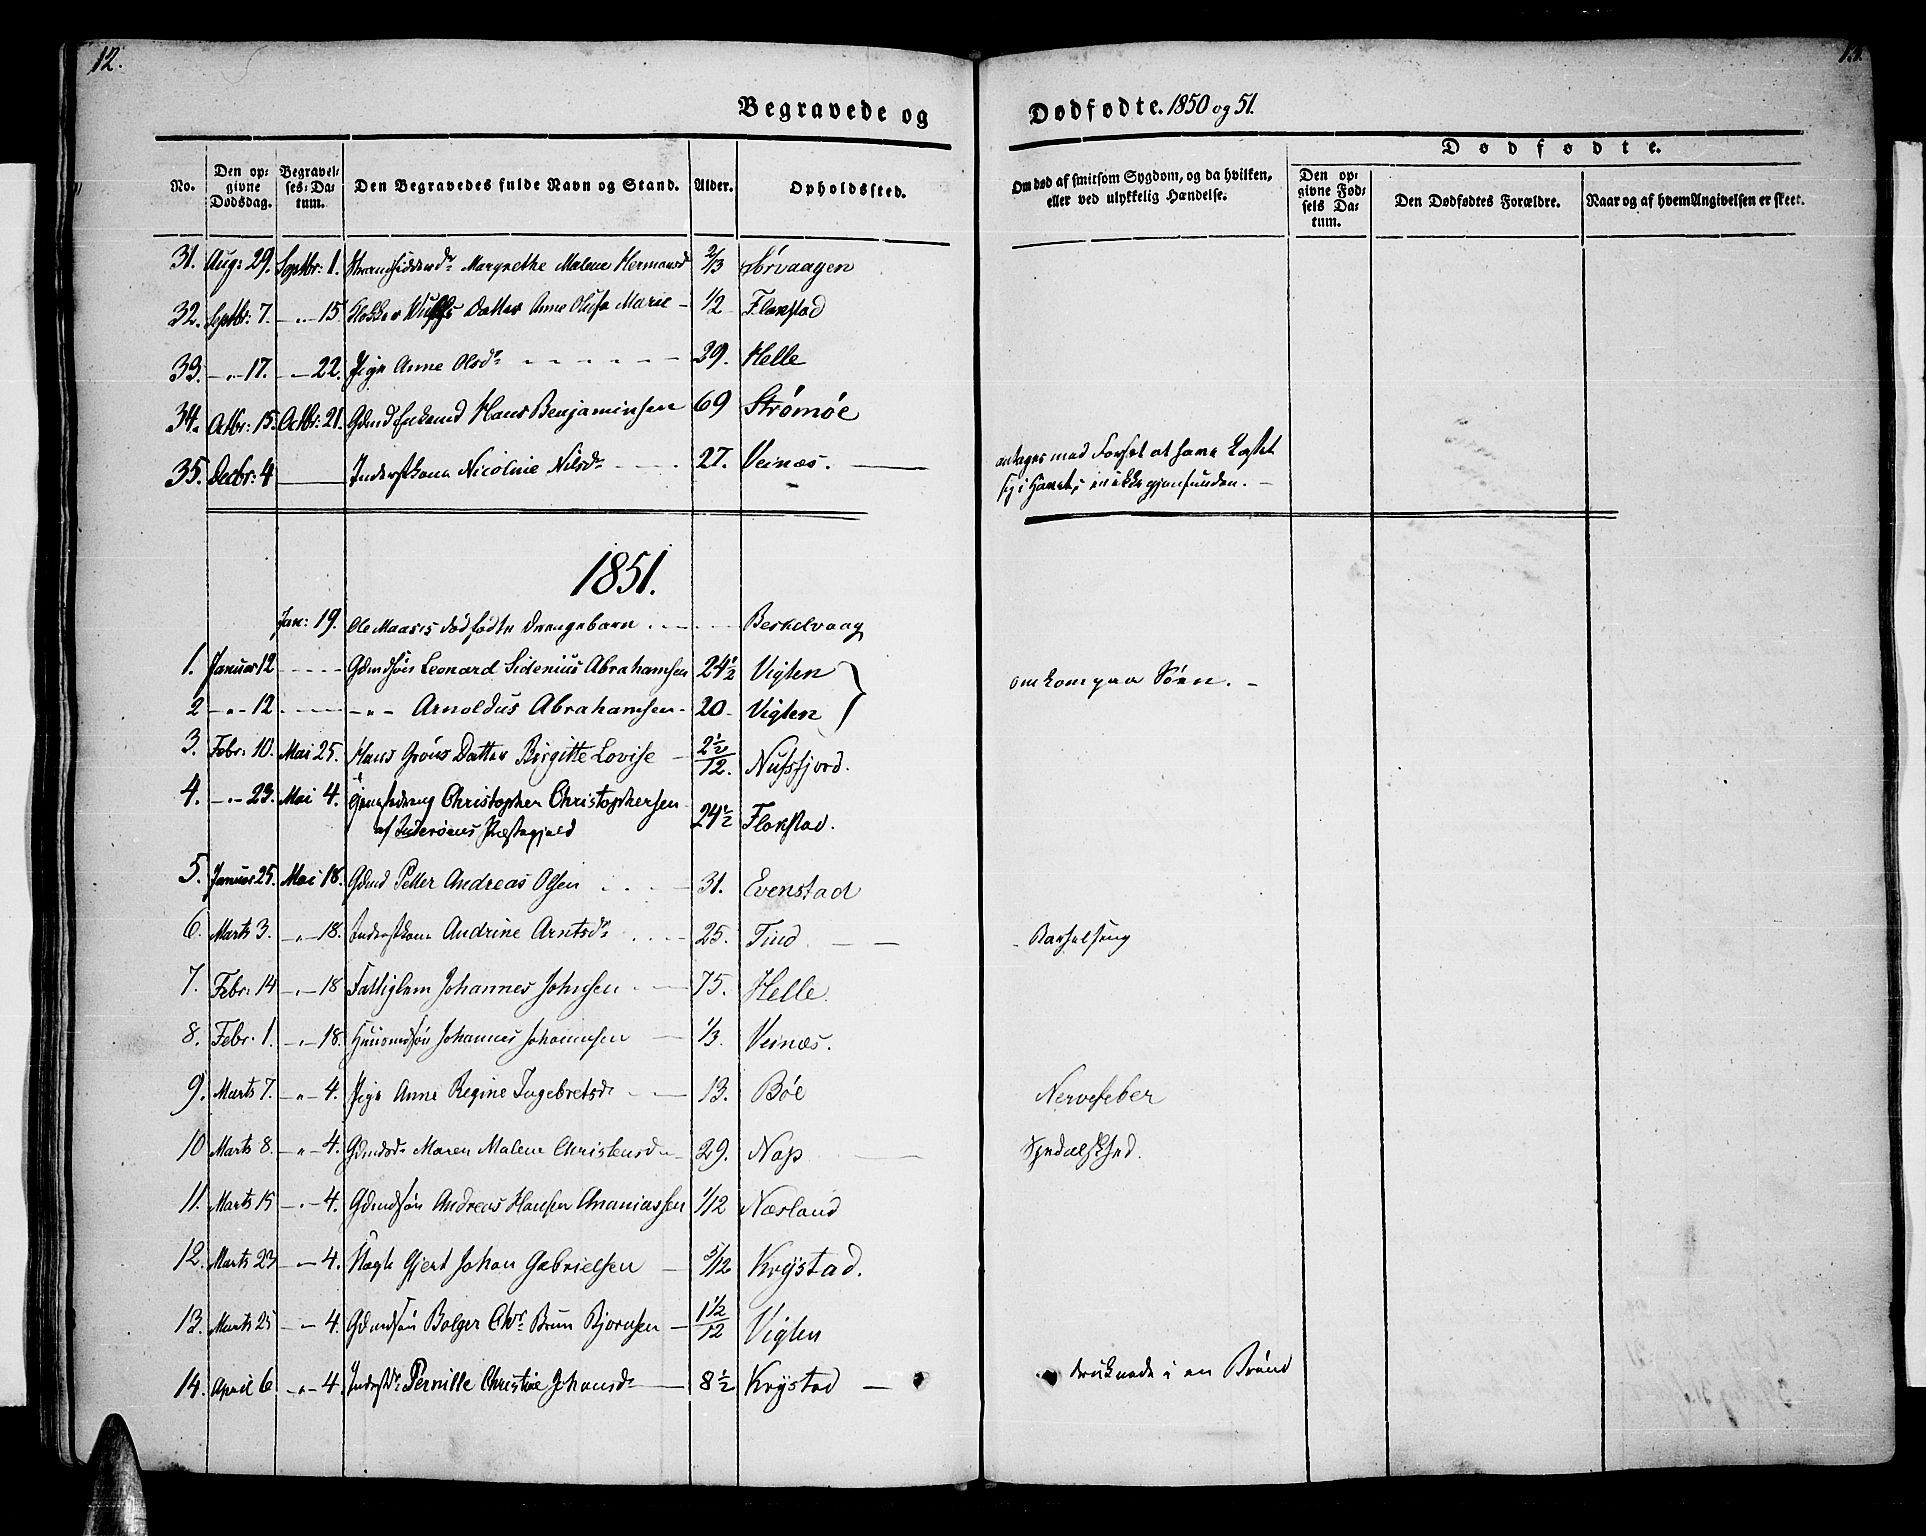 12.
13.
Begravede og
Dødfødte. 1850 og 51.
No.
Den op-
givne
Dødsdag.
Begravel-
ses-Da-
tum.
Den Begravedes fulde Navn og Stand.
Alder.
Opholdssted.
Om død af smitsom Sygdom, og da hvilken,
eller ved ulykkelig Hændelse.
Dødfødte.
Den op-
givne Fød-
sels Da-
tum.
Den Dødfødtes Forældre.
Naar og af hvem Angivelsen er skeet.
31. Aug: 29. Septbr: 1. Margrethe Malene Hermansd 2/3 Sørvaagen
32. Septbr: 7. -"- 15. Datter Anne Olufa Marie - 1/2 Flakstad
33. -"- 17. -"- 22. Pige Anne Olsdr - - - - - 39. Helle
34. Octbr: 15. Octbr: 21. Gdmd Enkemd Hans Benjaminsen 69 Strømøe
35. Decbr: 4 Inderstkone Nicoline Nilsdr - - - 27. Veinæs. antages med Forsæt at have kastet
sig i Havet; er ikke gjenfunden. -
1851.
Jan: 19. Ole Maases dødfødte Drengebarn . - - - Berkelvaag
1. Januar 12 - - - - Gdmdsøn Leonard Sidenius Abrahamsen 24 1/2 Vigten
omkom paa Søen. -
2 -"- 12 - - - - -"- Arnoldus Abrahamsen - 20 - Vigten
3. Febr: 10. Mai 25. Hans Grøns Datter Birgitte Lovise - 2 1/2/12. Nufsfjord.
4. -"- 23. Mai 4. Christopher Christophersen
af Inderøens Præstegjeld 24 1/2 Flakstad.
5. Januar 25. Mai 18. Gdmd Petter Andreas Olsen . . - - 31. Evenstad
6. Marts 3. -"- 18. Inderstkone Andrine Arntsdr . . - - 25. Tind - - - Barselseng
7. Febr: 14 -"- 18 Fattiglem Johannes Johnsen - - - 75. Helle.
8. Febr: 1. -"- 18. Huusmdsøn Johannes Johannesen - 1/3. Veinæs.
9. Marts 7. -"- 4. Pige Anne Regine Ingebretsdr - - 13. Bøe Nervefeber
10 Marts 8. -"- 4. Gdmdsdr Maren Malene Christensdr - 29. Nap - Spedalskhed.
11. Marts 15 -"- 4. Gdmdsøn Andreas Hansen Ananiassen 1/12 Næsland
12. Marts 23 -"- 4. Uægte Gjert Johan Gabrielsen - 5/12 Krystad.
13. Marts 25 -"- 4. Gdmdsøn Bolger Chr. Brun Bjornsen - 1 1/2/12 Vigten
14. April 6 -"- 4. Inderstdr Pernille Christine Johansdr - 8 1/2 Krystad - druknede i en Brønd